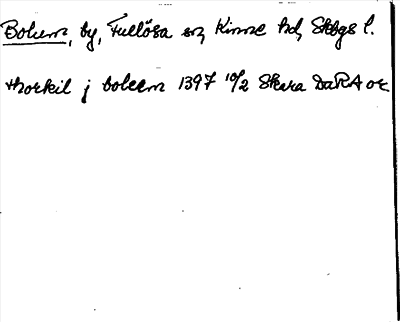 Bolum, by, Fullösa sn, Kinne hd, Skbgs l.
thorkil j boleem 1397 10/2 Skara DaRA or